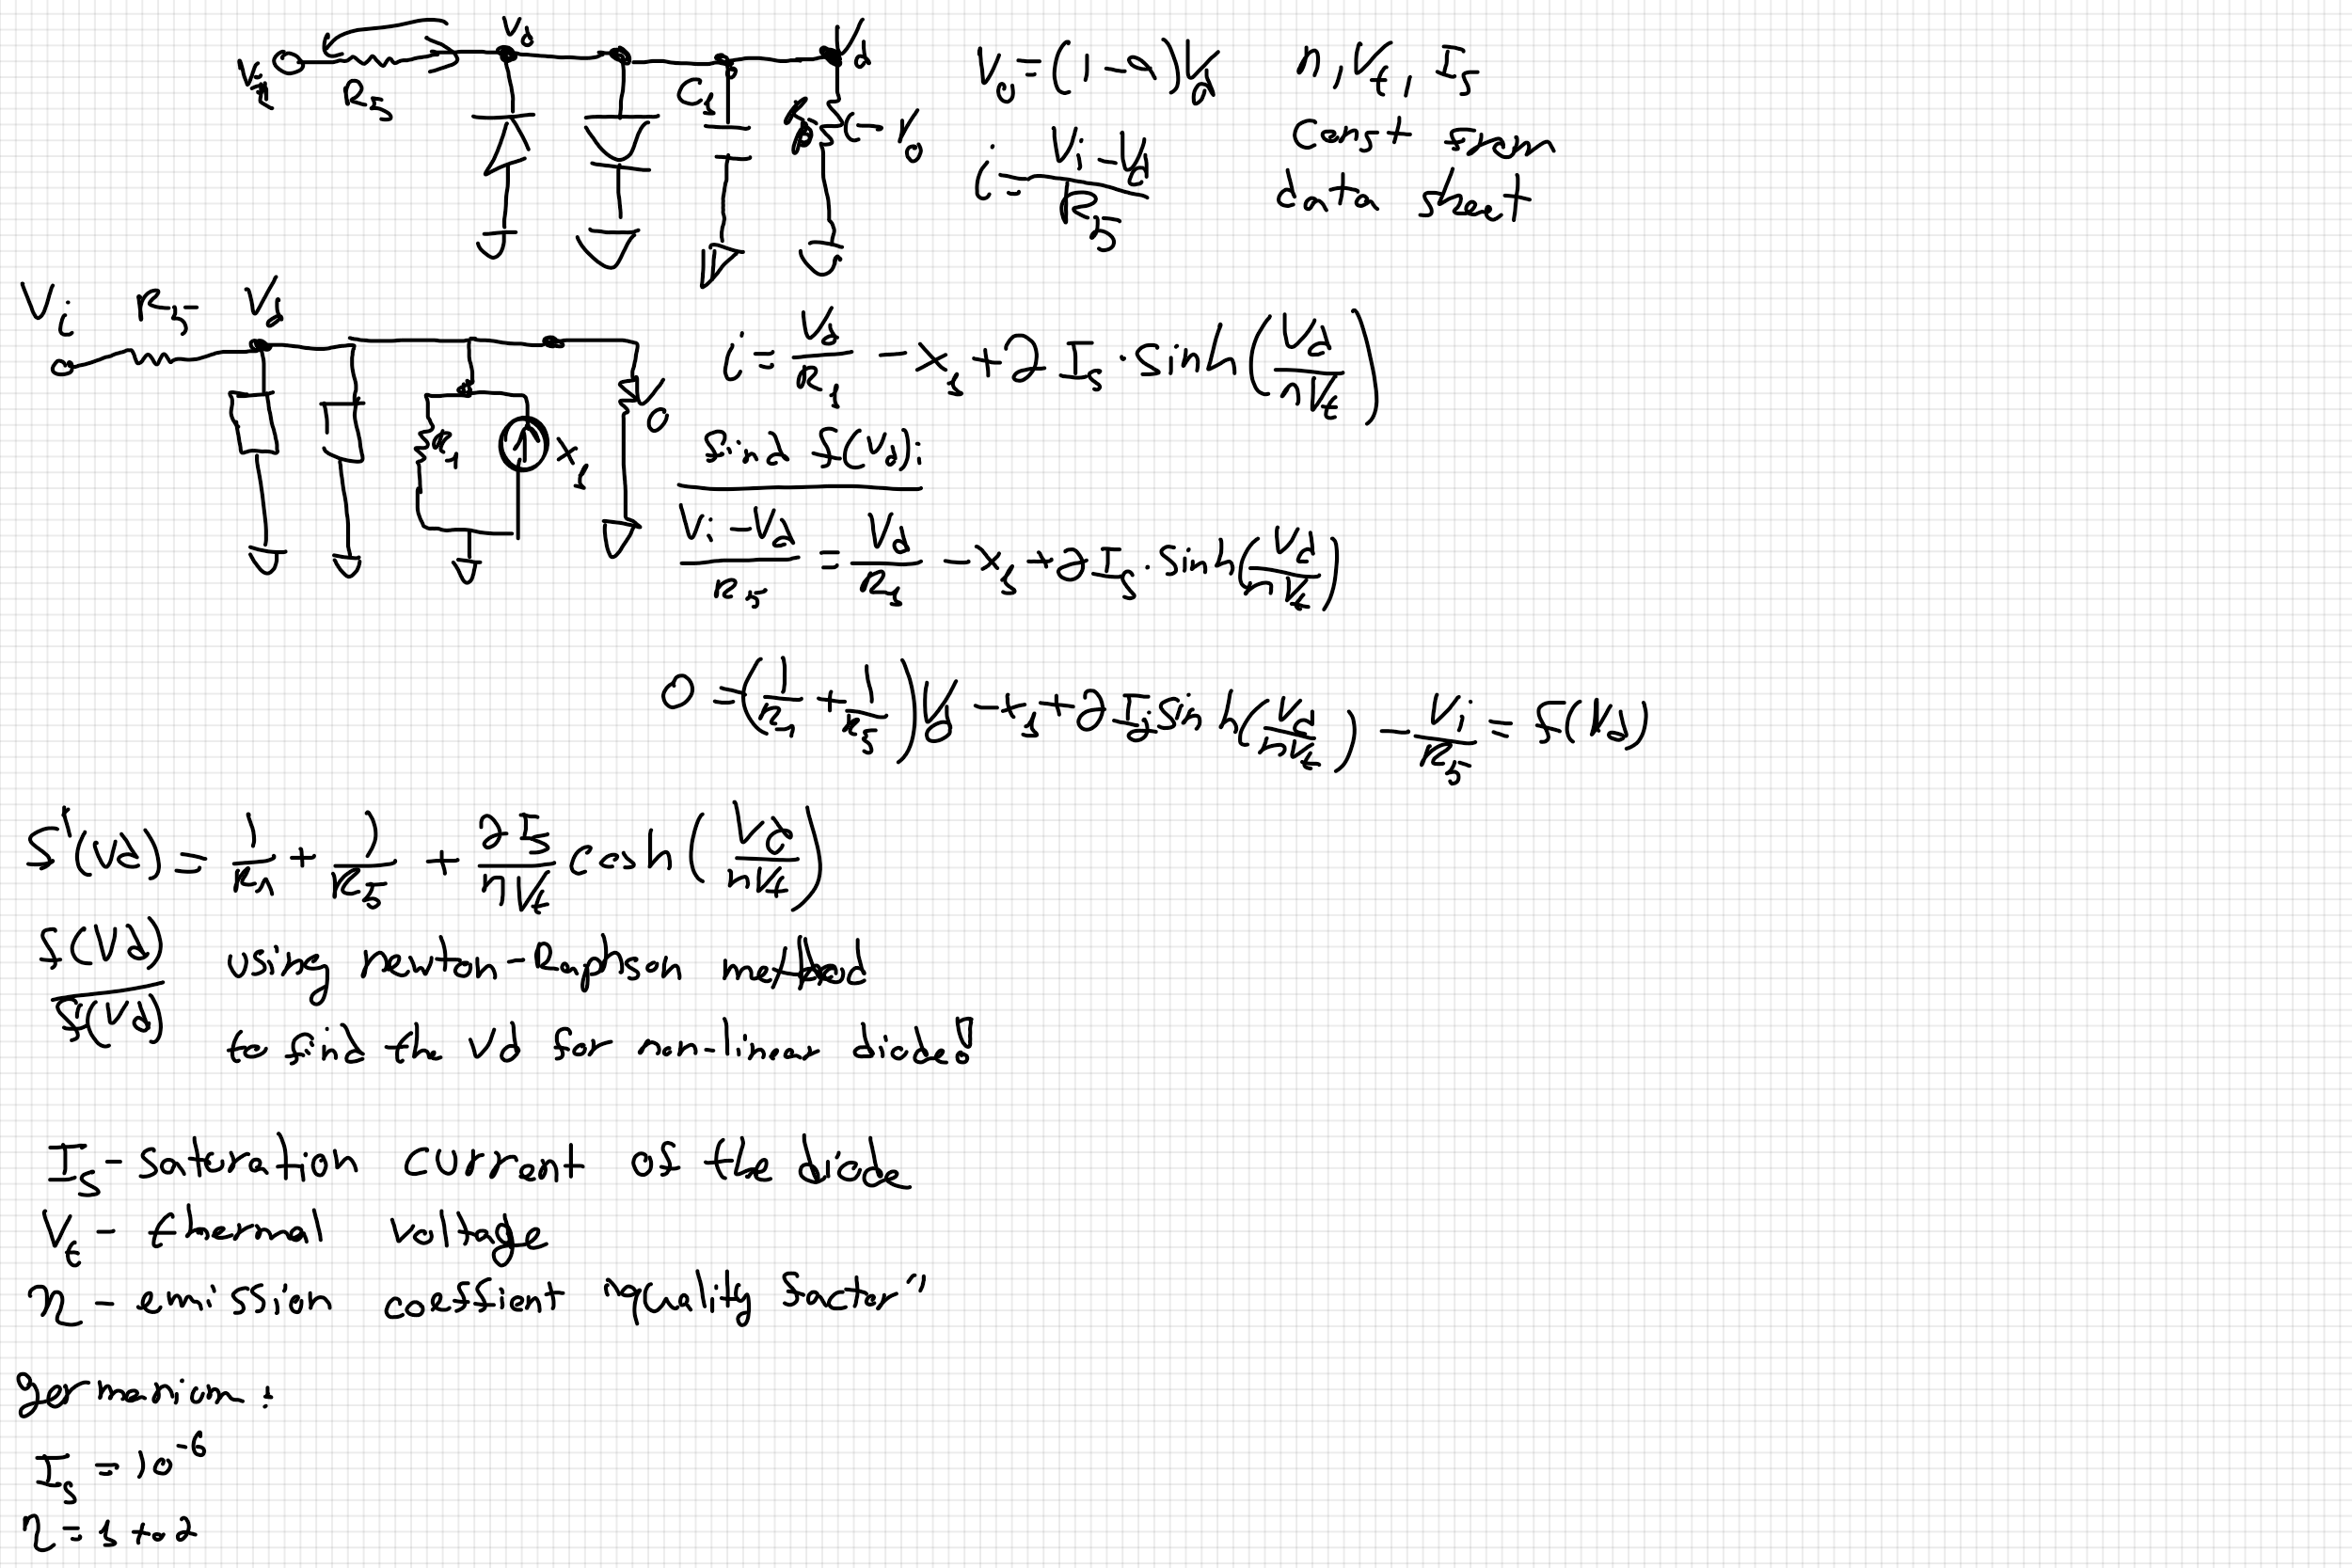 V_i R_5 V_d C_1 V_d
V_0
V_0 = (1-a)V_d
i = (V_i - V_d)/R_5
n, V_t, I_s
const from
data sheet
V_i R_5 V_d
R_1 x_1 V_0
i = V_d/R_1 - x_1 + 2 I_s · sinh(V_d/(nV_t))
find f(V_d):
(V_i - V_d)/R_5 = V_d/R_1 - x_1 + 2 I_s · sinh(V_d/(nV_t))
0 = (1/R_1 + 1/R_5)V_d - x_1 + 2 I_s sinh(V_d/(nV_t)) - V_i/R_5 = f(V_d)
f'(Vd) = 1/R_1 + 1/R_5 + (2 I_s)/(nV_t) cosh(V_d/(nV_t))
f(Vd)/f'(Vd)
using newton-Raphson method
to find the Vd for non-linear diode!
I_s - saturation current of the diode
V_t - thermal voltage
η - emission coeffient "quality factor"
germanium:
I_s = 10^-6
η = 1 to 2